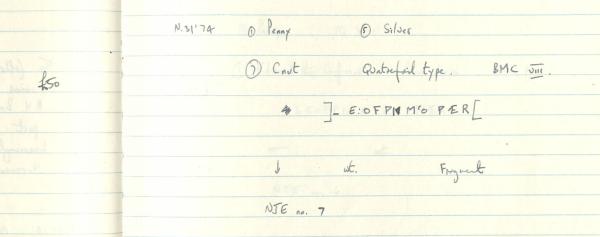 N.31'74 ① Penny ⑤ Silver
⑦ Cnut Quatrefoil type. BMC viii.
£50
] – E:OFPN M'O PÆR [
↓ wt. Fragment
NJE no. 7